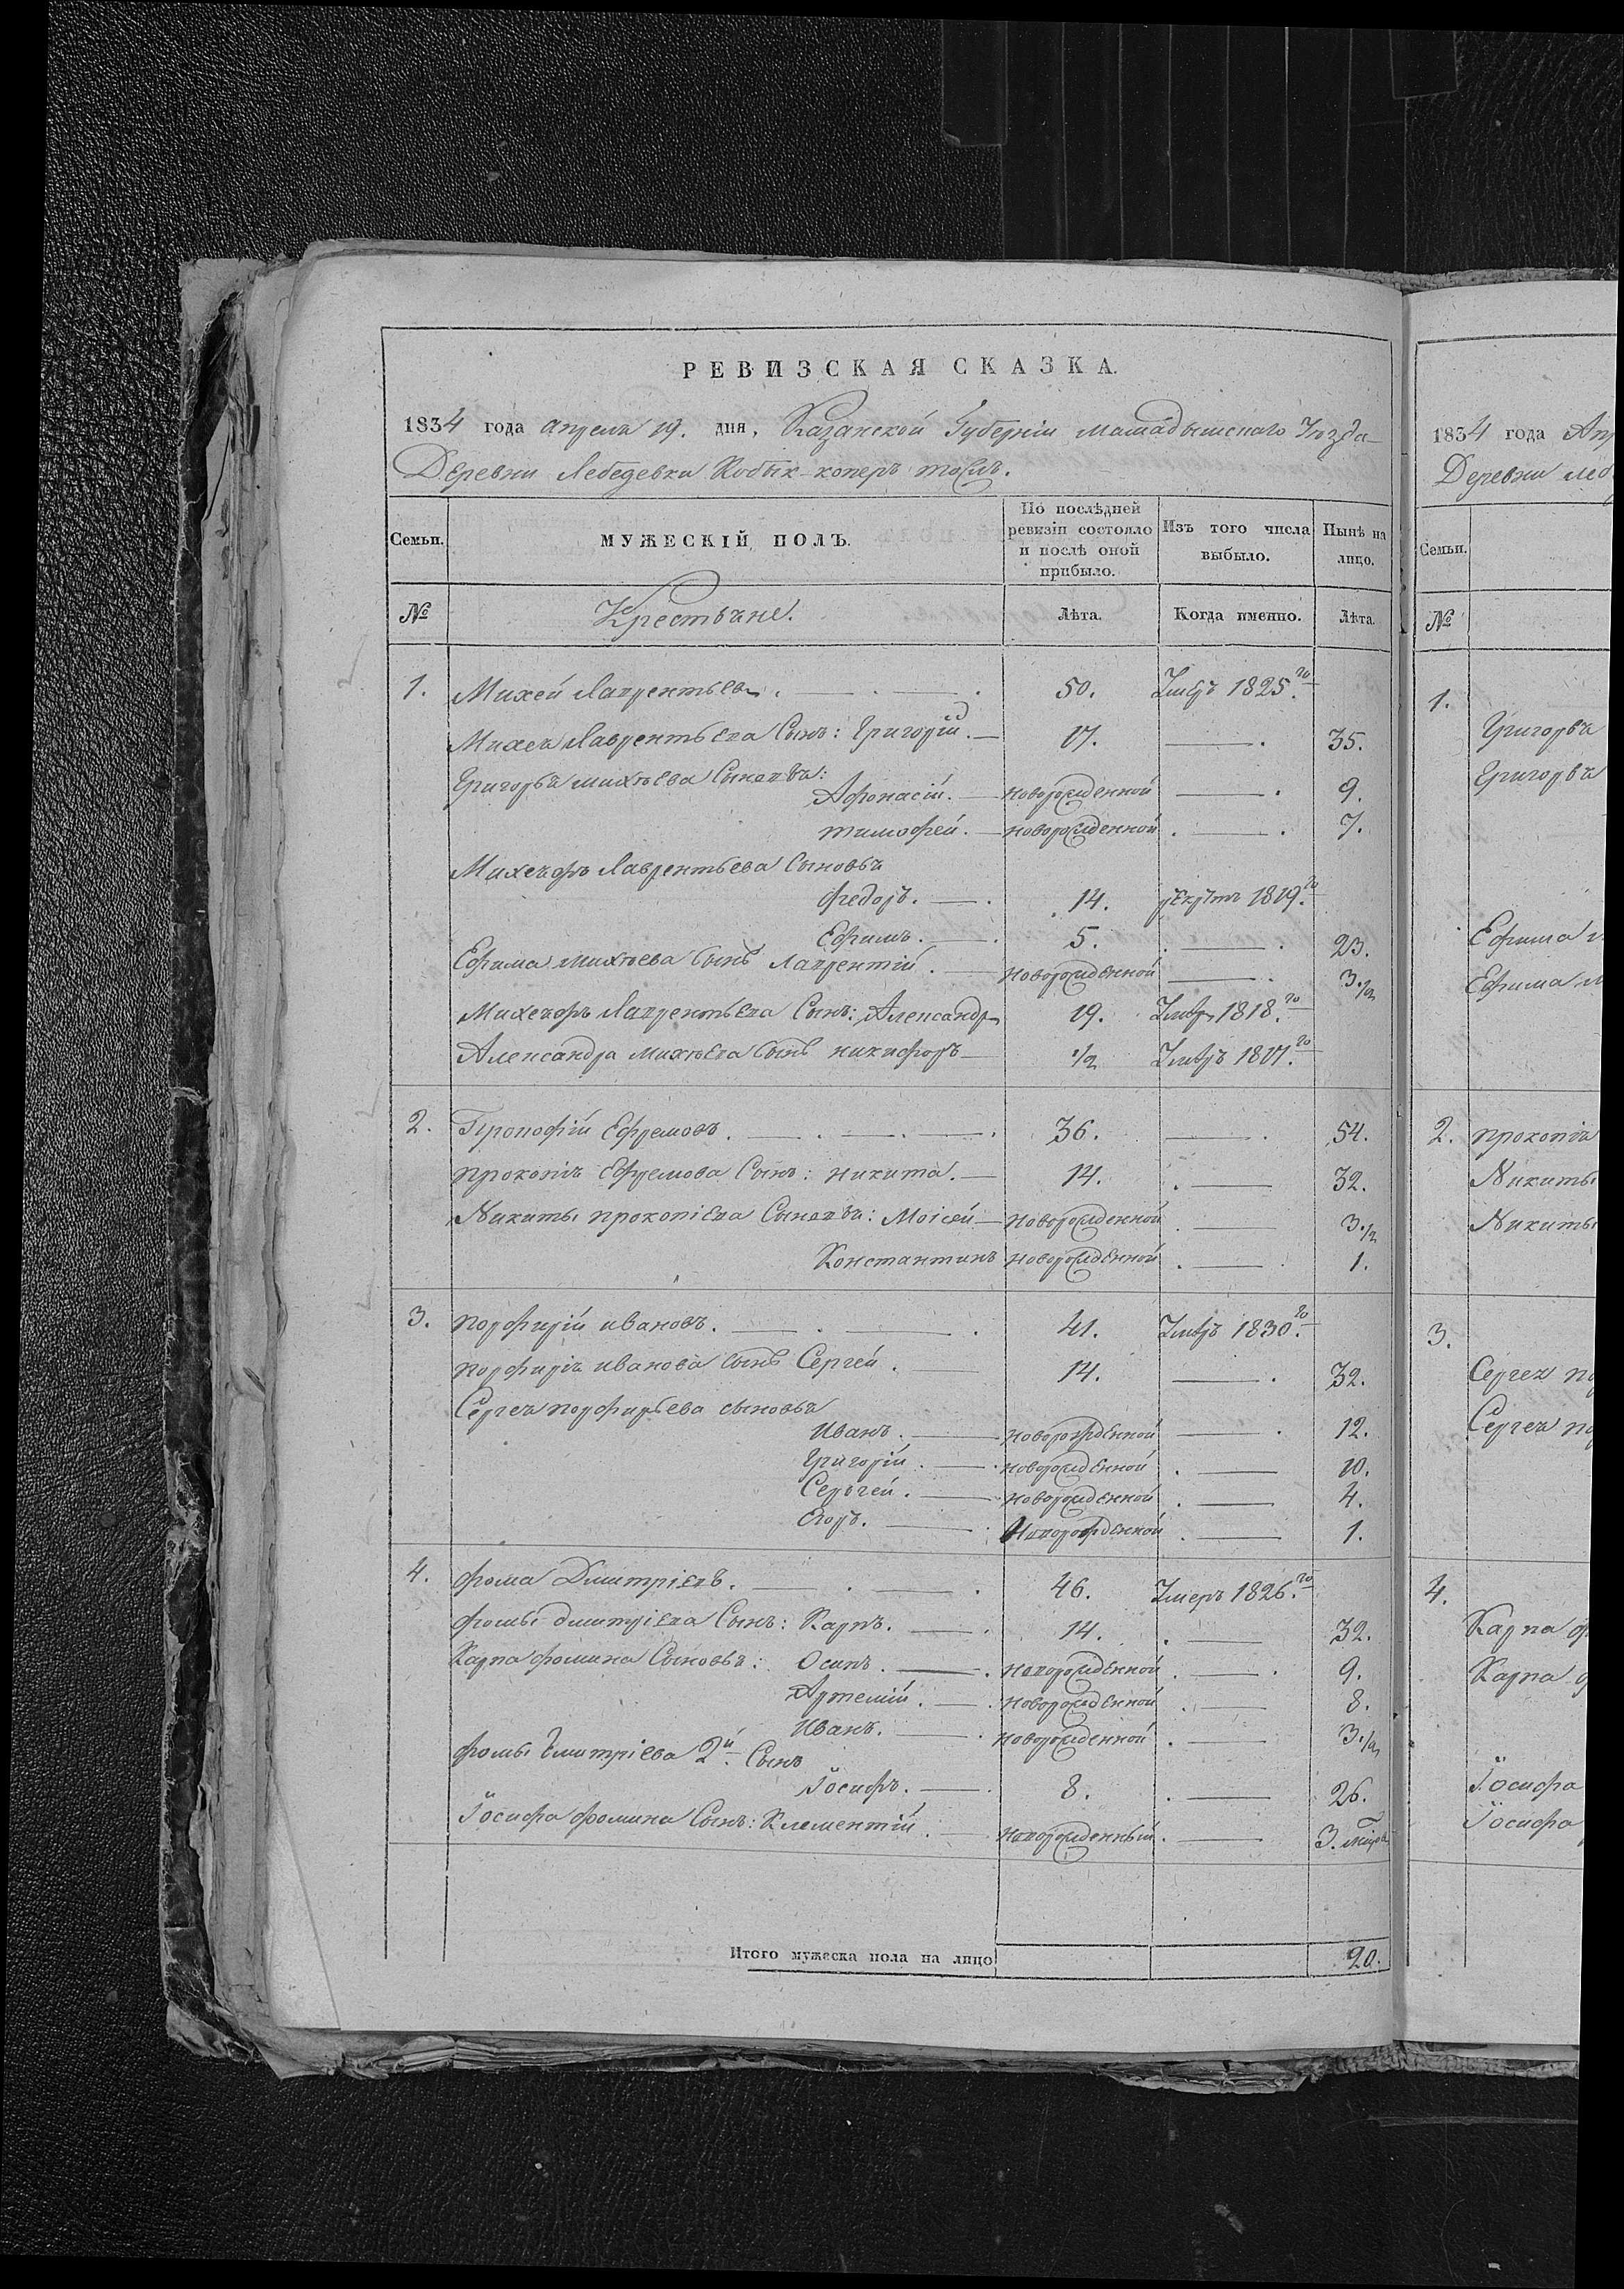 РЕВИЗСКАЯ СКАЗКА.
1834 года апреля 19. дня, Казанской Губерніи мамадышскаго Уезда
Деревни Лебедевка Кобык-коперъ тожъ.
Семьи. МУЖЕСКІЙ ПОЛЪ. По послѣдней ревизіи состояло и послѣ оной прибыло. Изъ того числа выбыло. Нынѣ на лицо.
№ Крестьяне. Лѣта. Когда именно. Лѣта.
1. Михей Лаврентьевъ. 50. Умеръ 1825.го
Михея Лаврентьева Сынъ: Григорій. 17. 35.
Григорья михѣева Сыновья:
Афонасій. новорожденной 9.
тимофей. новорожденной 7.
Михея Лаврентьева Сыновья
федоръ. 14. рекрутъ 1819.го
Ефимъ. 5. 23.
Ефима михѣева Сынъ Лаврентій. новорожденной 3.1/2
Лаврентьева Сынъ: Александръ 19. Умеръ 1818.го
Александра михѣева Сынъ никифоръ 1/2 Умеръ 1817.го
2. Прокофій Ефремовъ. 36. 54.
прокопія Ефремова Сынъ: никита. 14. 32.
Никиты прокопіева Сыновья: Моісей новорожденной 3.1/2
Константинъ новорожденной 1.
3. порфирій ивановъ. 41. Умеръ 1830.го
порфирія иванова Сынъ Сергей. 14. 32.
Сергея порфирьева сыновья
Иванъ. новорожденной 12.
Григорій. новорожденной 10.
Сергей. новорожденной 4.
Егоръ. Новорожденной 1.
4. фома Дмитріевъ. 46. Умеръ 1826.го
фомы дмитріева Сынъ: Карпъ. 14. 32.
Карпа фомина Сыновья: Осипъ. новорожденной 9.
Артемій. новорожденной 8.
Иванъ. новорожденной 3.1/2
фомы дмитріева 2й. Сынъ
Іосифъ. 8. 26.
Іосифа фомина Сынъ: Клементій. новорожденный 3.
Итого мужеска пола на лицо 20.
1834 года Апр
Деревни леб
Семьи.
№
1.
Григорья
Григорья
Ефима м
Ефима м
2. прокопія
Никиты
Никиты
3.
Сергея по
Сергея по
4.
Карпа ф
Карпа ф
Іосифа
Іосифа